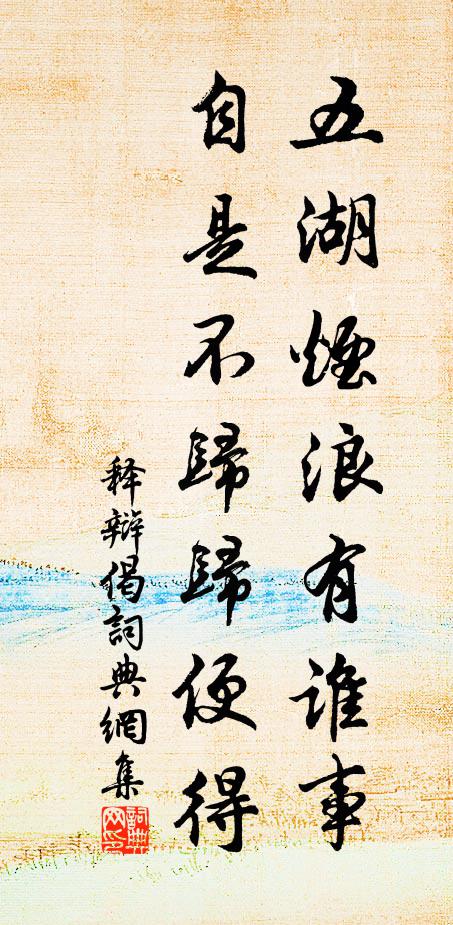 五湖煙浪有誰事
自是不歸歸便得
释辩偈詞典網集
詞典
网印